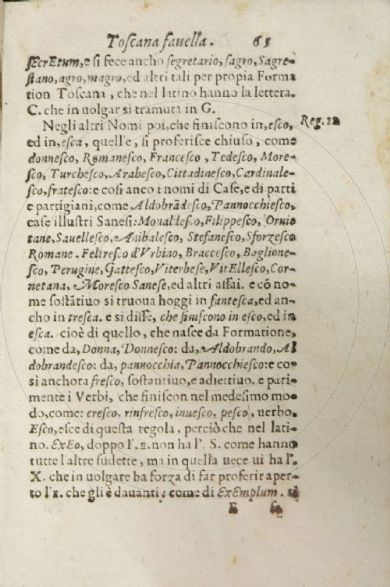 Toscana favella. 65
sEcrEtum, e si fece ancho segretario, sagro, Sagre-
stano, agro, magro, ed altri tali per propia Forma
tion Toscana, che nel latino hanno la lettera.
C. che in uolgar si tramuta in G.
Negli altri Nomi poi, che finiscono in, esco, Reg. 12
ed in, esca, quell'e, si proferisce chiuso, come
donnesco, Romanesco, Francesco, Tedesco, More-
sco, Turchesco, Arabesco, Cittadinesco, Cardinale-
sco, fratesco: e così anco i nomi di Case, e di parti
e partigiani, come Aldobrãdesco, Pannocchiesco,
case illustri Sanesi: Monaldesco, Filippesco, Oruie
tane, Sauellesco, Anibalesco, Stefanesco, Sforzesco
Romane. Feltresco d'Vrbino, Braccesco, Baglione-
sco, Perugine, Gattesco, Viterbese, VitEllesco, Cor-
netana. Moresco Sanese, ed altri assai. e cõ no-
me sostãtiuo si truoua hoggi in fantesca, ed an-
cho in tresca. e si disse, che finiscono in esco, ed in
esca. cioè di quello, che nasce da Formatione,
come da, Donna, Donnesco: da, Aldobrando, Al
dobrandesco: da, pannocchia, Pannocchiesco: e co
sì anchora fresco, sostantiuo, e adiettiuo. e pari-
mente i Verbi, che finiscon nel medesimo mo-
do, come: cresco, rinfresco, inuesco, pesco, uerbo.
Esco, esce di questa regola, perciò che nel lati-
no. ExEo, doppo l'E. non ha l' S. come hanno
tutte l'altre sudette, ma in quella uece ui ha l'
X. che in uolgare ha forza di far proferir aper-
to l'E. che gli è dauanti, come di ExEmplum. si
E